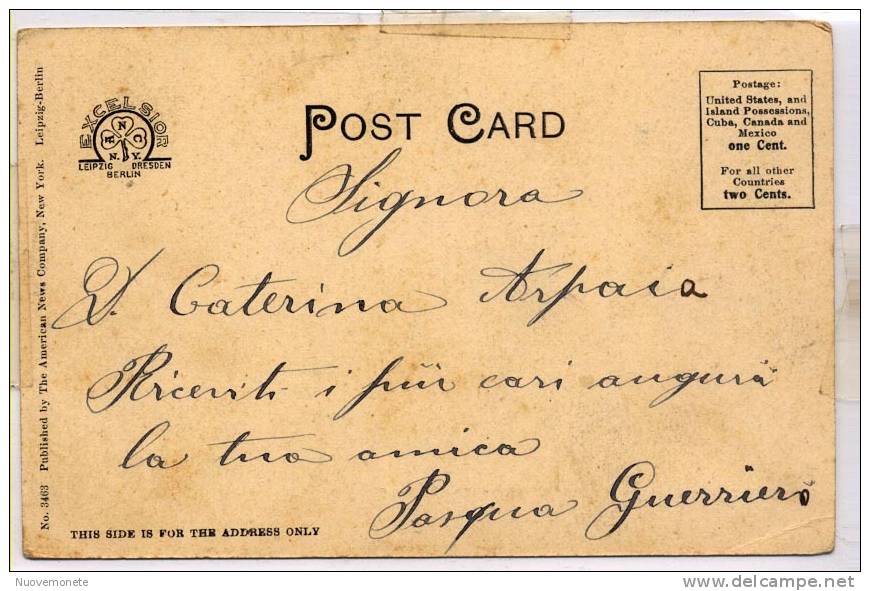 POST CARD
EXCELSIOR
A N C
N.Y.
LEIPZIG DRESDEN
BERLIN
Postage:
United States, and
Island Possessions,
Cuba, Canada and
Mexico
one Cent.
For all other
Countries
two Cents.
Signora
D. Caterina Arpaia
Riceviti i più cari auguri
la tua amica
Pasqua Guerriero
THIS SIDE IS FOR THE ADDRESS ONLY
No. 3463 Published by The American News Company, New York. Leipzig-Berlin
Nuovemonete
www.delcampe.net